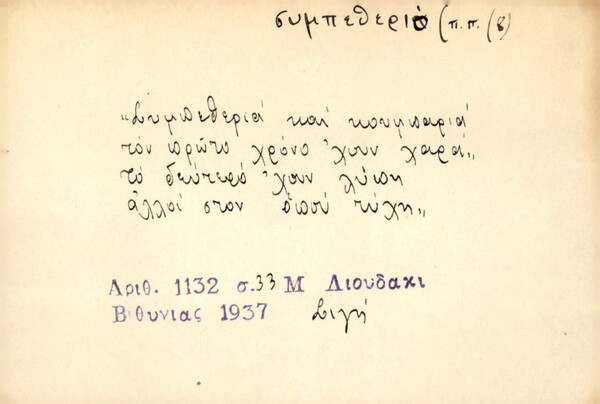 συμπεθεριό (π.π. (8)
"Συμπεθεριά καί κουμπαριά
τόν πρῶτο χρόνο ἔχουν χαρά,,
τό δεύτερό ἔχουν λύπη
ἀλλοί στον ὁπού τύχη,,
Αριθ. 1132 σ.33 Μ Λιουδακι
Βιθυνιας 1937 Σιγή